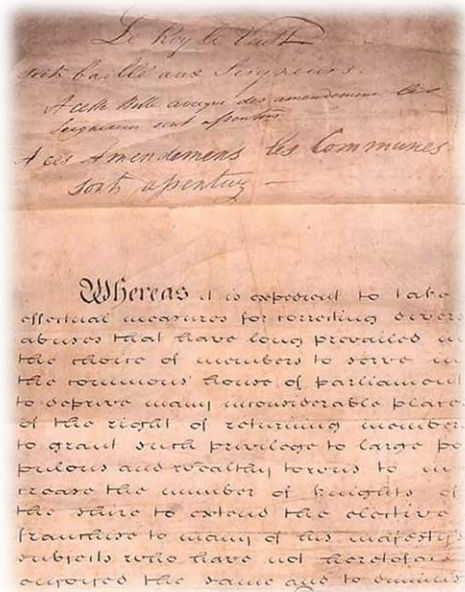 Le Roy le Veult
soit baillé aux Seigneurs
A ceste Bille avecque des amendemens les
Seigneurs sont assentus
A ces Amendemens les Communes
sont assentuz
Whereas it is expedient to take
effectual measures for correcting divers
abuses that have long prevailed in
the choice of members to serve in
the commons house of parliament
to deprive many inconsiderable place
of the right of returning member
to grant such privilege to large po
pulous and wealthy towns to in
crease the number of knights of
the shire to extend the elective
franchise to many of his majestys
subjects who have not heretofore
enjoyed the same and to